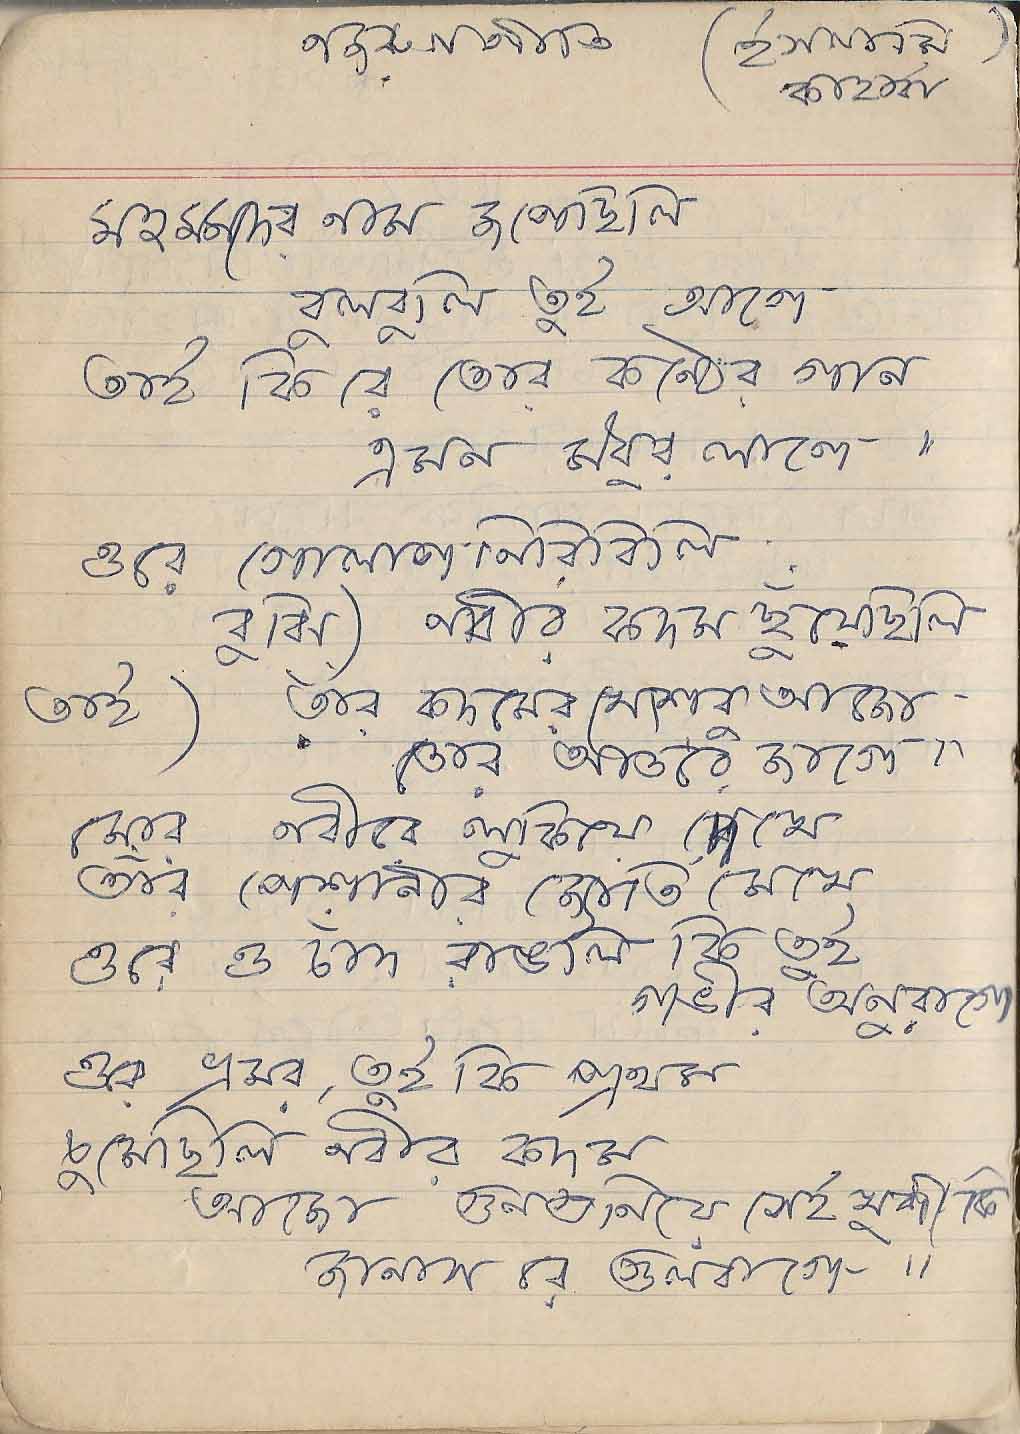 নজরুলগীতি (ইসলামি)
কাহারবা
মহম্মদের নাম জপেছিলি
বুলবুলি তুই আগে
তাই কি রে তোর কন্ঠের গান
এমন মধুর লাগে "
ওরে গোলাপ নিরিবিলি
বুঝি) নবীর কদম ছুঁয়েছিলি
তাই) তাঁর কদমের খোশবু আজো
তোর আতরে জাগে "
মোর নবীরে লুকিয়ে দেখে
তাঁর পেশানীর জ্যোতি মেখে
ওরে ও চাঁদ রাঙলি কি তুই
গভীর অনুরাগে
ওরে ভ্রমর, তুই কি প্রথম
চুমেছিলি নবীর কদম
আজো গুনগুনিয়ে সেই খুশী কি
জানাস রে গুলবাগে "